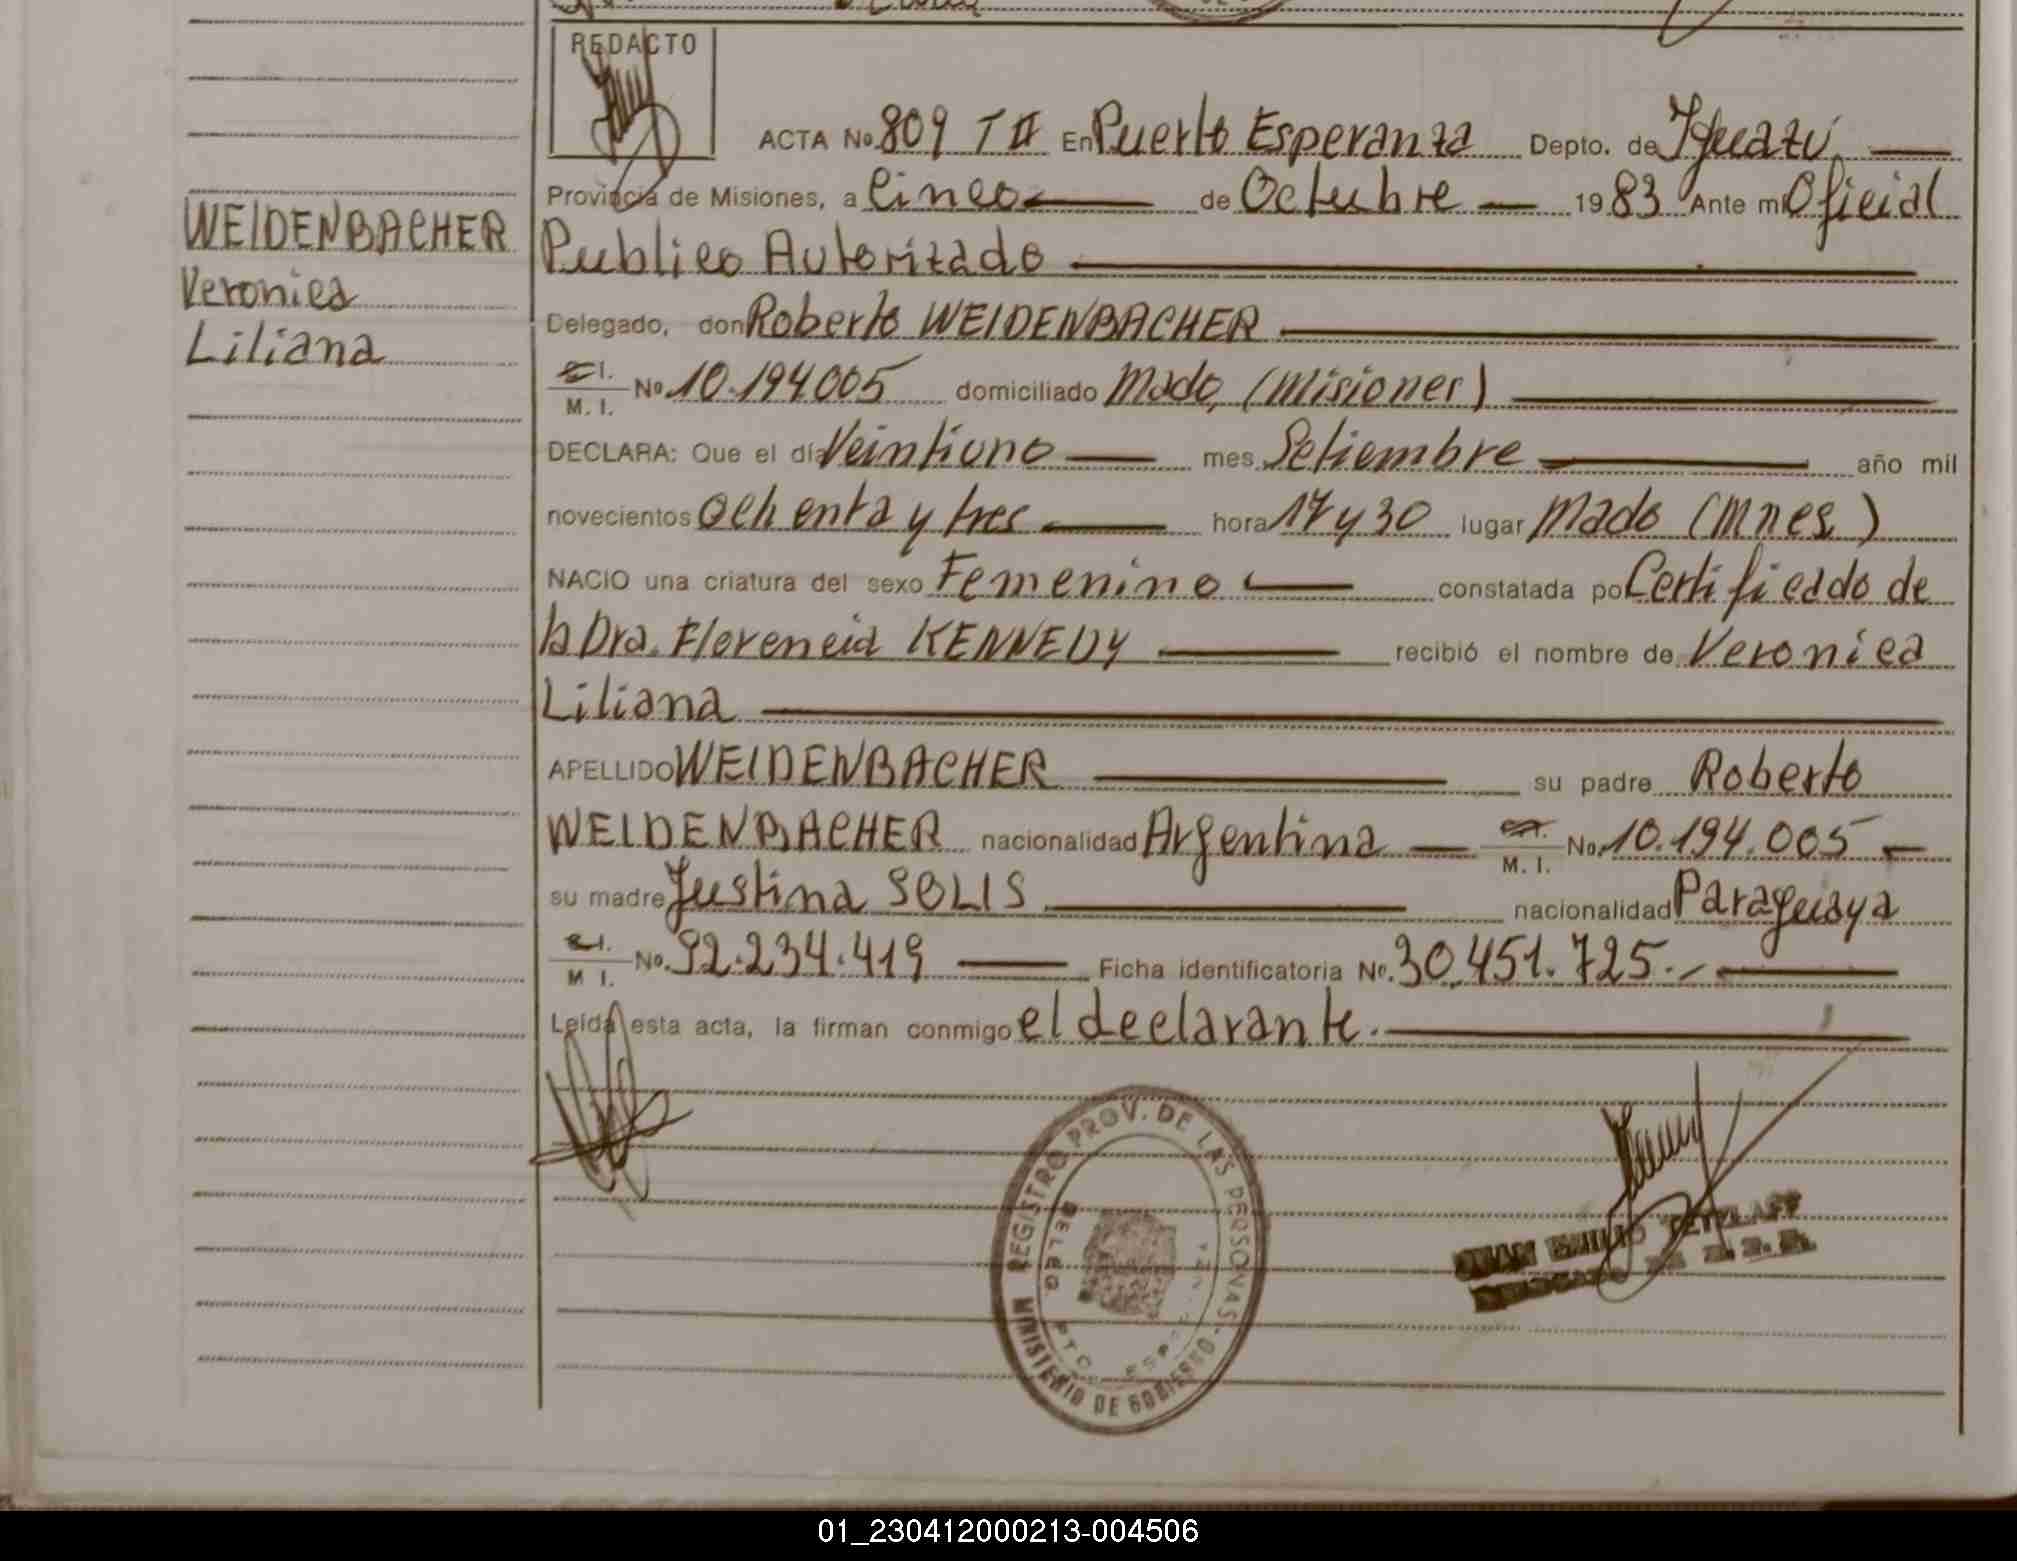 REDACTO
ACTA No. 809 T II En Puerto Esperanza Depto. de Iguazú
Provincia de Misiones, a Cinco de Octubre 1983 Ante mi Oficial
WEIDENBACHER
Publico Autorizado
Veronica
Delegado, don Roberto WEIDENBACHER
Liliana
M. I. No. 10.194.005 domiciliado Mado, (Misiones)
DECLARA: Que el día Veintiuno mes Setiembre año mil
novecientos Ochenta y tres hora 17 y 30 lugar Mado (Mnes.)
NACIO una criatura del sexo Femenino constatada po Certificado de
la Dra. Florencia KENNEDY recibió el nombre de Veronica
Liliana
APELLIDO WEIDENBACHER su padre Roberto
WEIDENBACHER nacionalidad Argentina M. I. No. 10.194.005
su madre Justina SOLIS nacionalidad Paraguaya
M I. No. 92.234.419 Ficha identificatoria No. 30.451.725.-
Leída esta acta, la firman conmigo el declarante.
REGISTRO PROV. DE LAS PERSONAS -
MINISTERIO DE GOBIERNO
DELEG
PTO. ESP
JUAN EMILIO
01_230412000213-004506